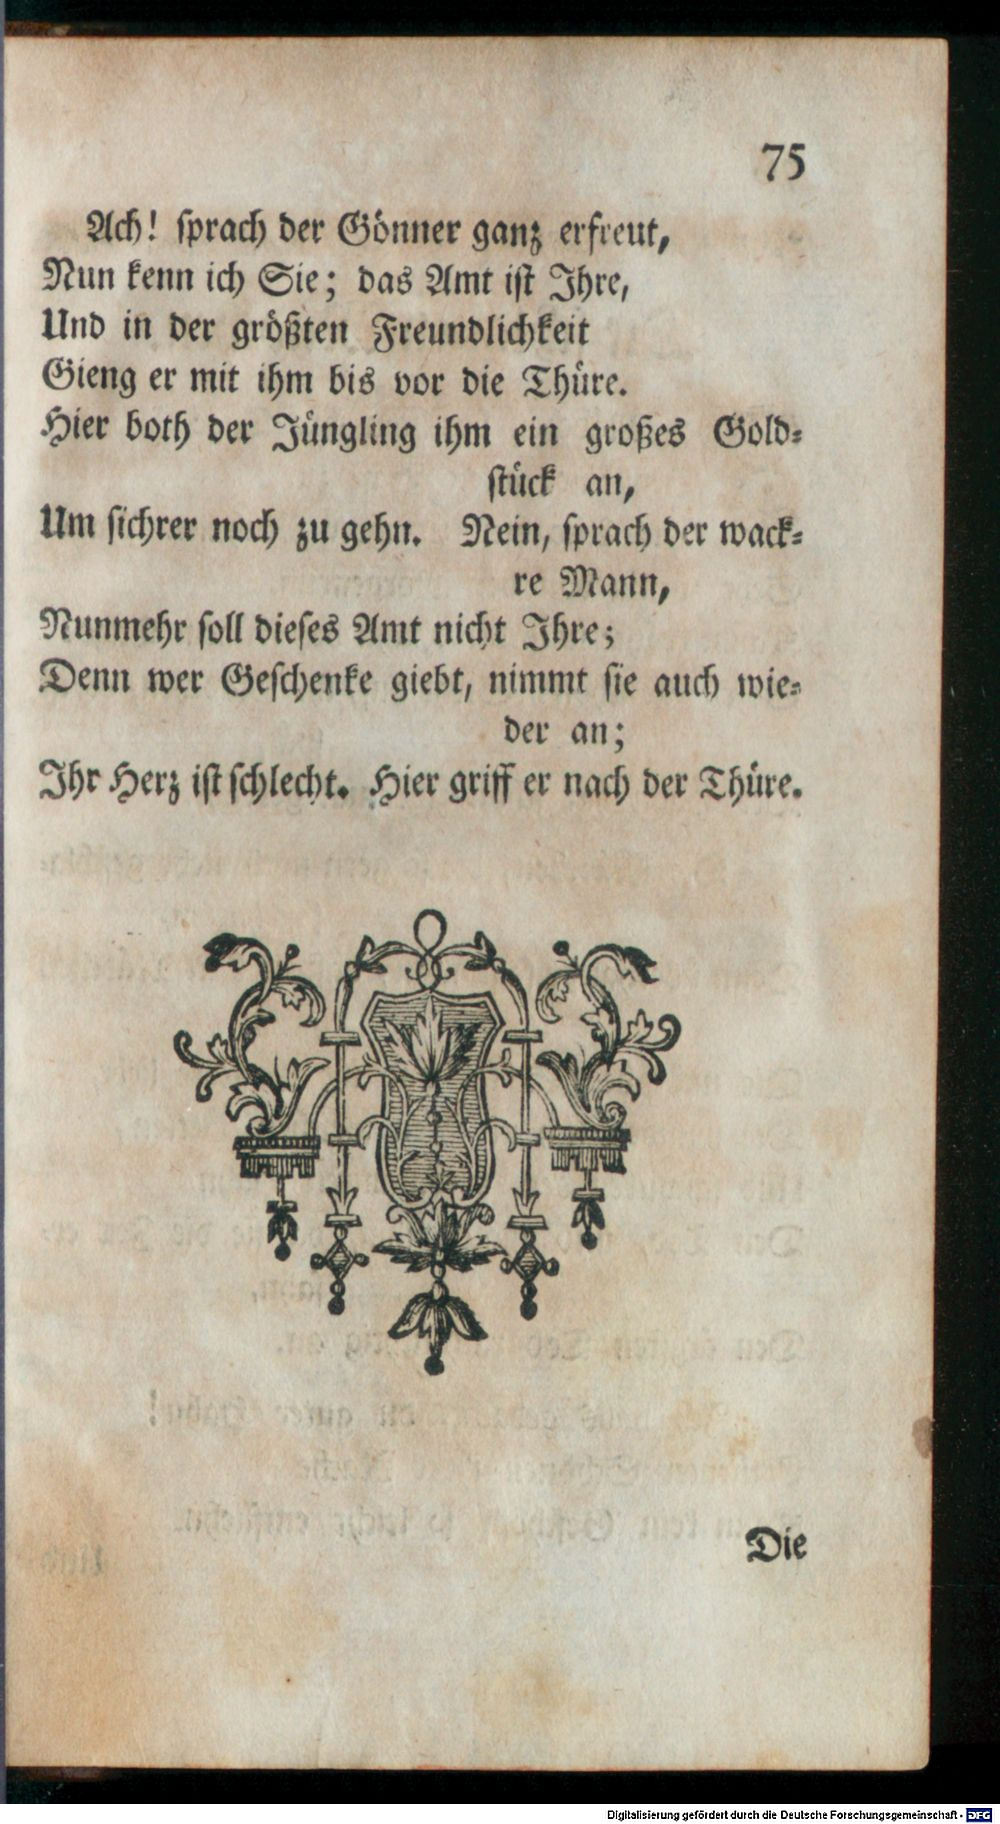 75
Ach! ſprach der Gönner ganz erfreut,
Nun kenn ich Sie; das Amt iſt Ihre,
Und in der größten Freundlichkeit
Gieng er mit ihm bis vor die Thüre.
Hier both der Jüngling ihm ein großes Gold-
ſtück an,
Um ſichrer noch zu gehn. Nein, ſprach der wack-
re Mann,
Nunmehr ſoll dieſes Amt nicht Ihre;
Denn wer Geſchenke giebt, nimmt ſie auch wie-
der an;
Ihr Herz iſt ſchlecht. Hier griff er nach der Thüre.
Die
Digitalisierung gefördert durch die Deutsche Forschungsgemeinschaft - DFG